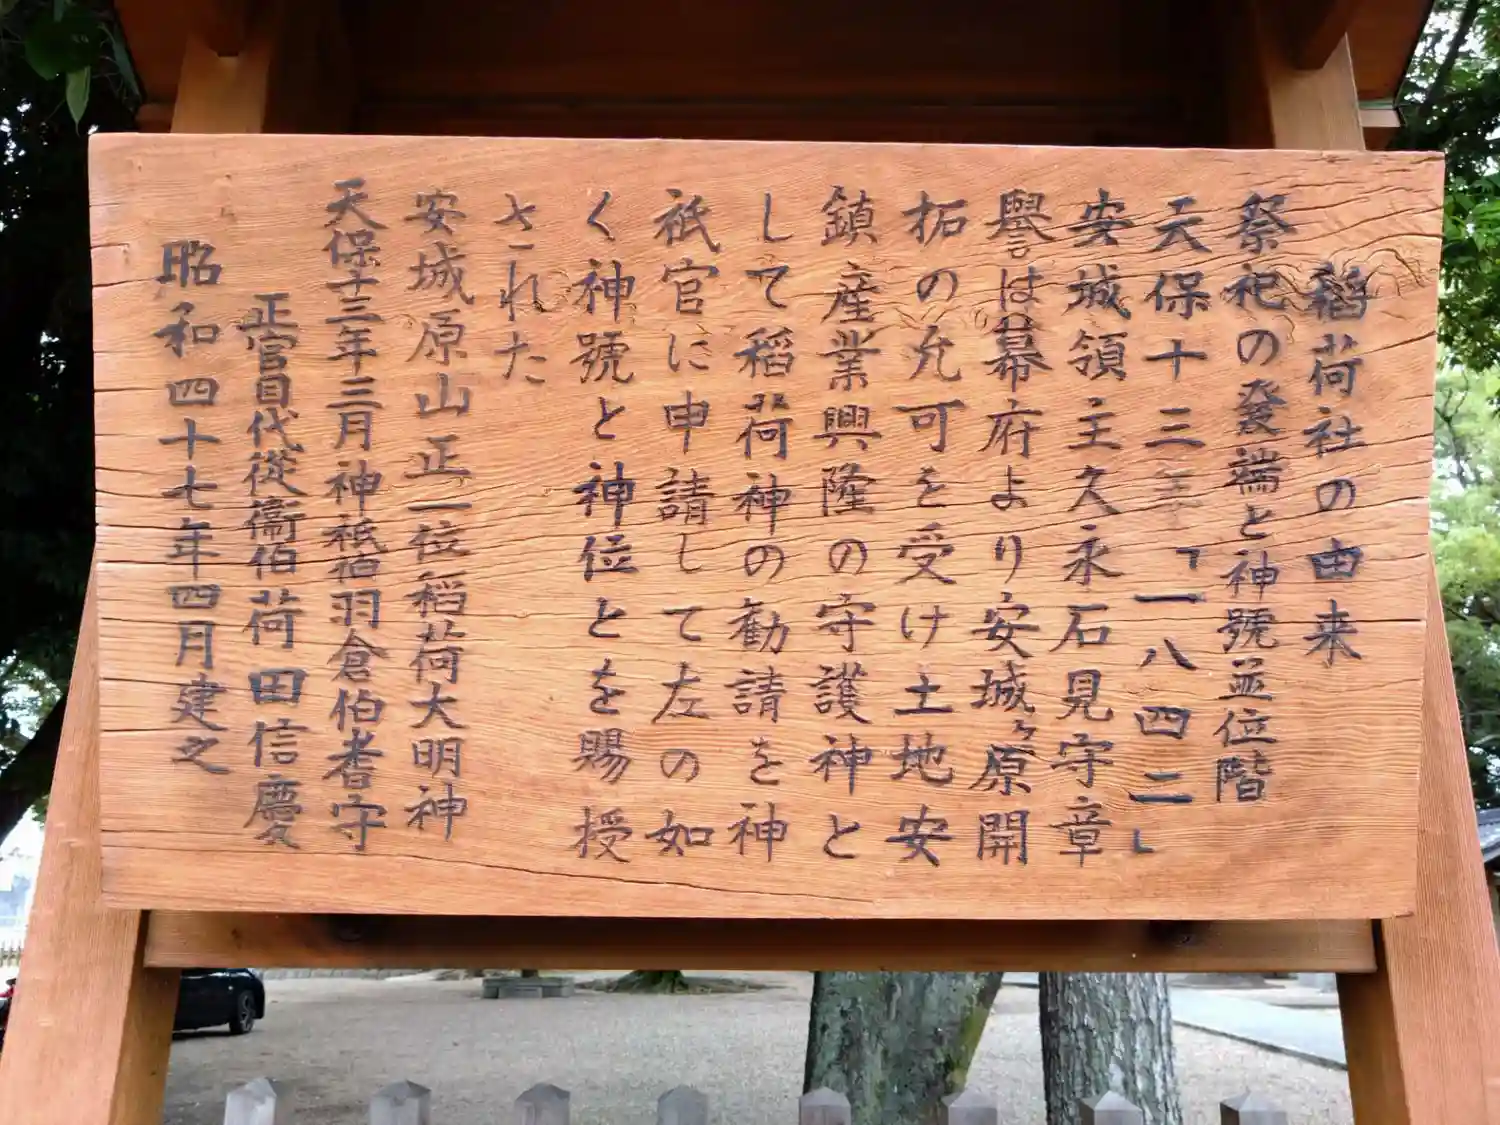 稲荷社の由来
祭祀の發端と神號並位階
天保十三年「一八四二」
安城領主久永石見守章
譽は幕府より安城ヶ原開
拓の允可を受け土地安
鎮産業興隆の守護神と
して稲荷神の勧請を神
祇官に申請して左の如
く神號と神位とを賜授
された
安城原山正一位稲荷大明神
天保十三年三月神祇伯羽倉伯耆守
正官目代従衞伯荷田信慶
昭和四十七年四月建之